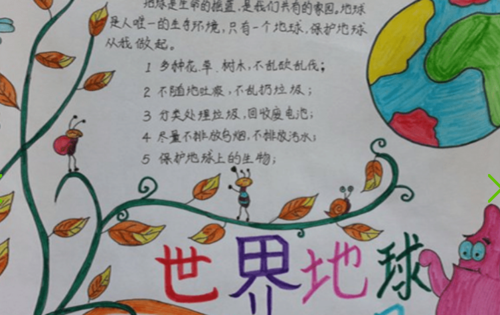 地球是生命的摇篮,是我们共有的家园,地球
是人唯一的生存环境,只有一个地球,保护地球
从我做起。
1 多种花、草、树木,不乱砍乱伐;
2 不随地吐痰,不乱扔垃圾;
3 分类处理垃圾,回收废电池;
4 尽量不排放乌烟,不排放污水;
5 保护地球上的生物;
世界地球